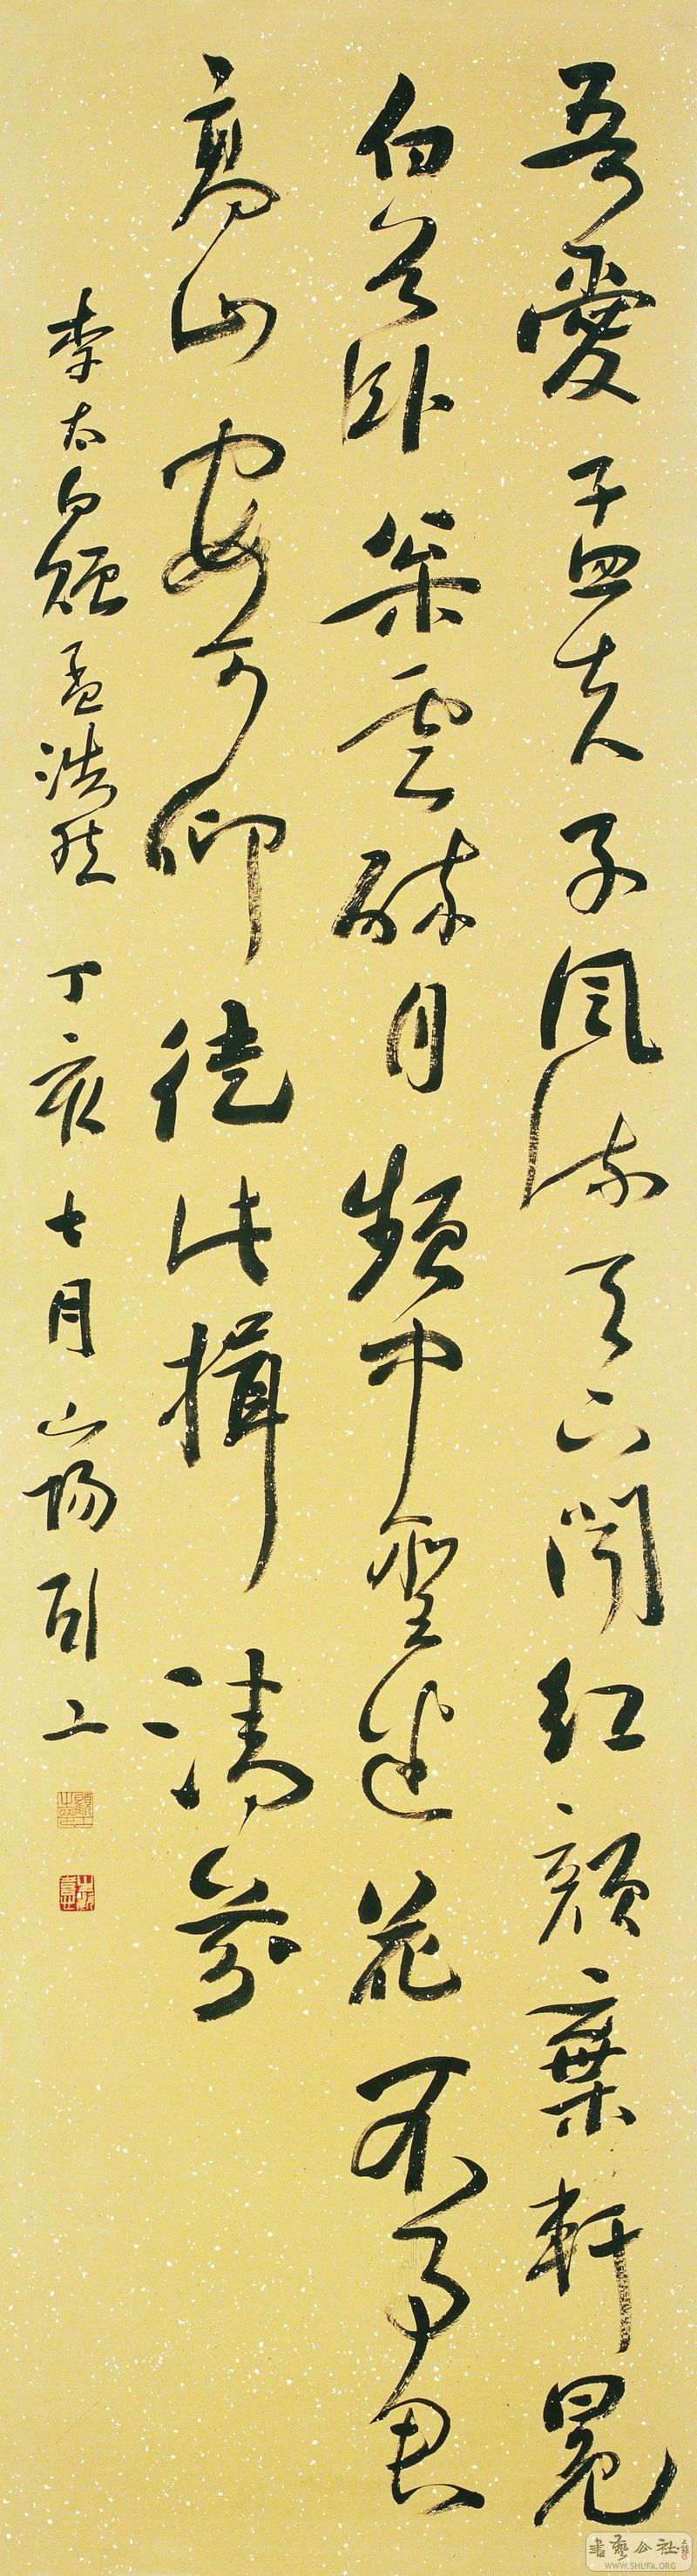 吾愛孟夫子風流天下聞紅顏棄軒冕
白首臥松雲醉月頻中聖迷花不事君
高山安可仰徒此揖清芬
李太白贈孟浩然 丁亥七月山陽顧工
顧工之印
書藝公社
WWW.SHUFA.ORG